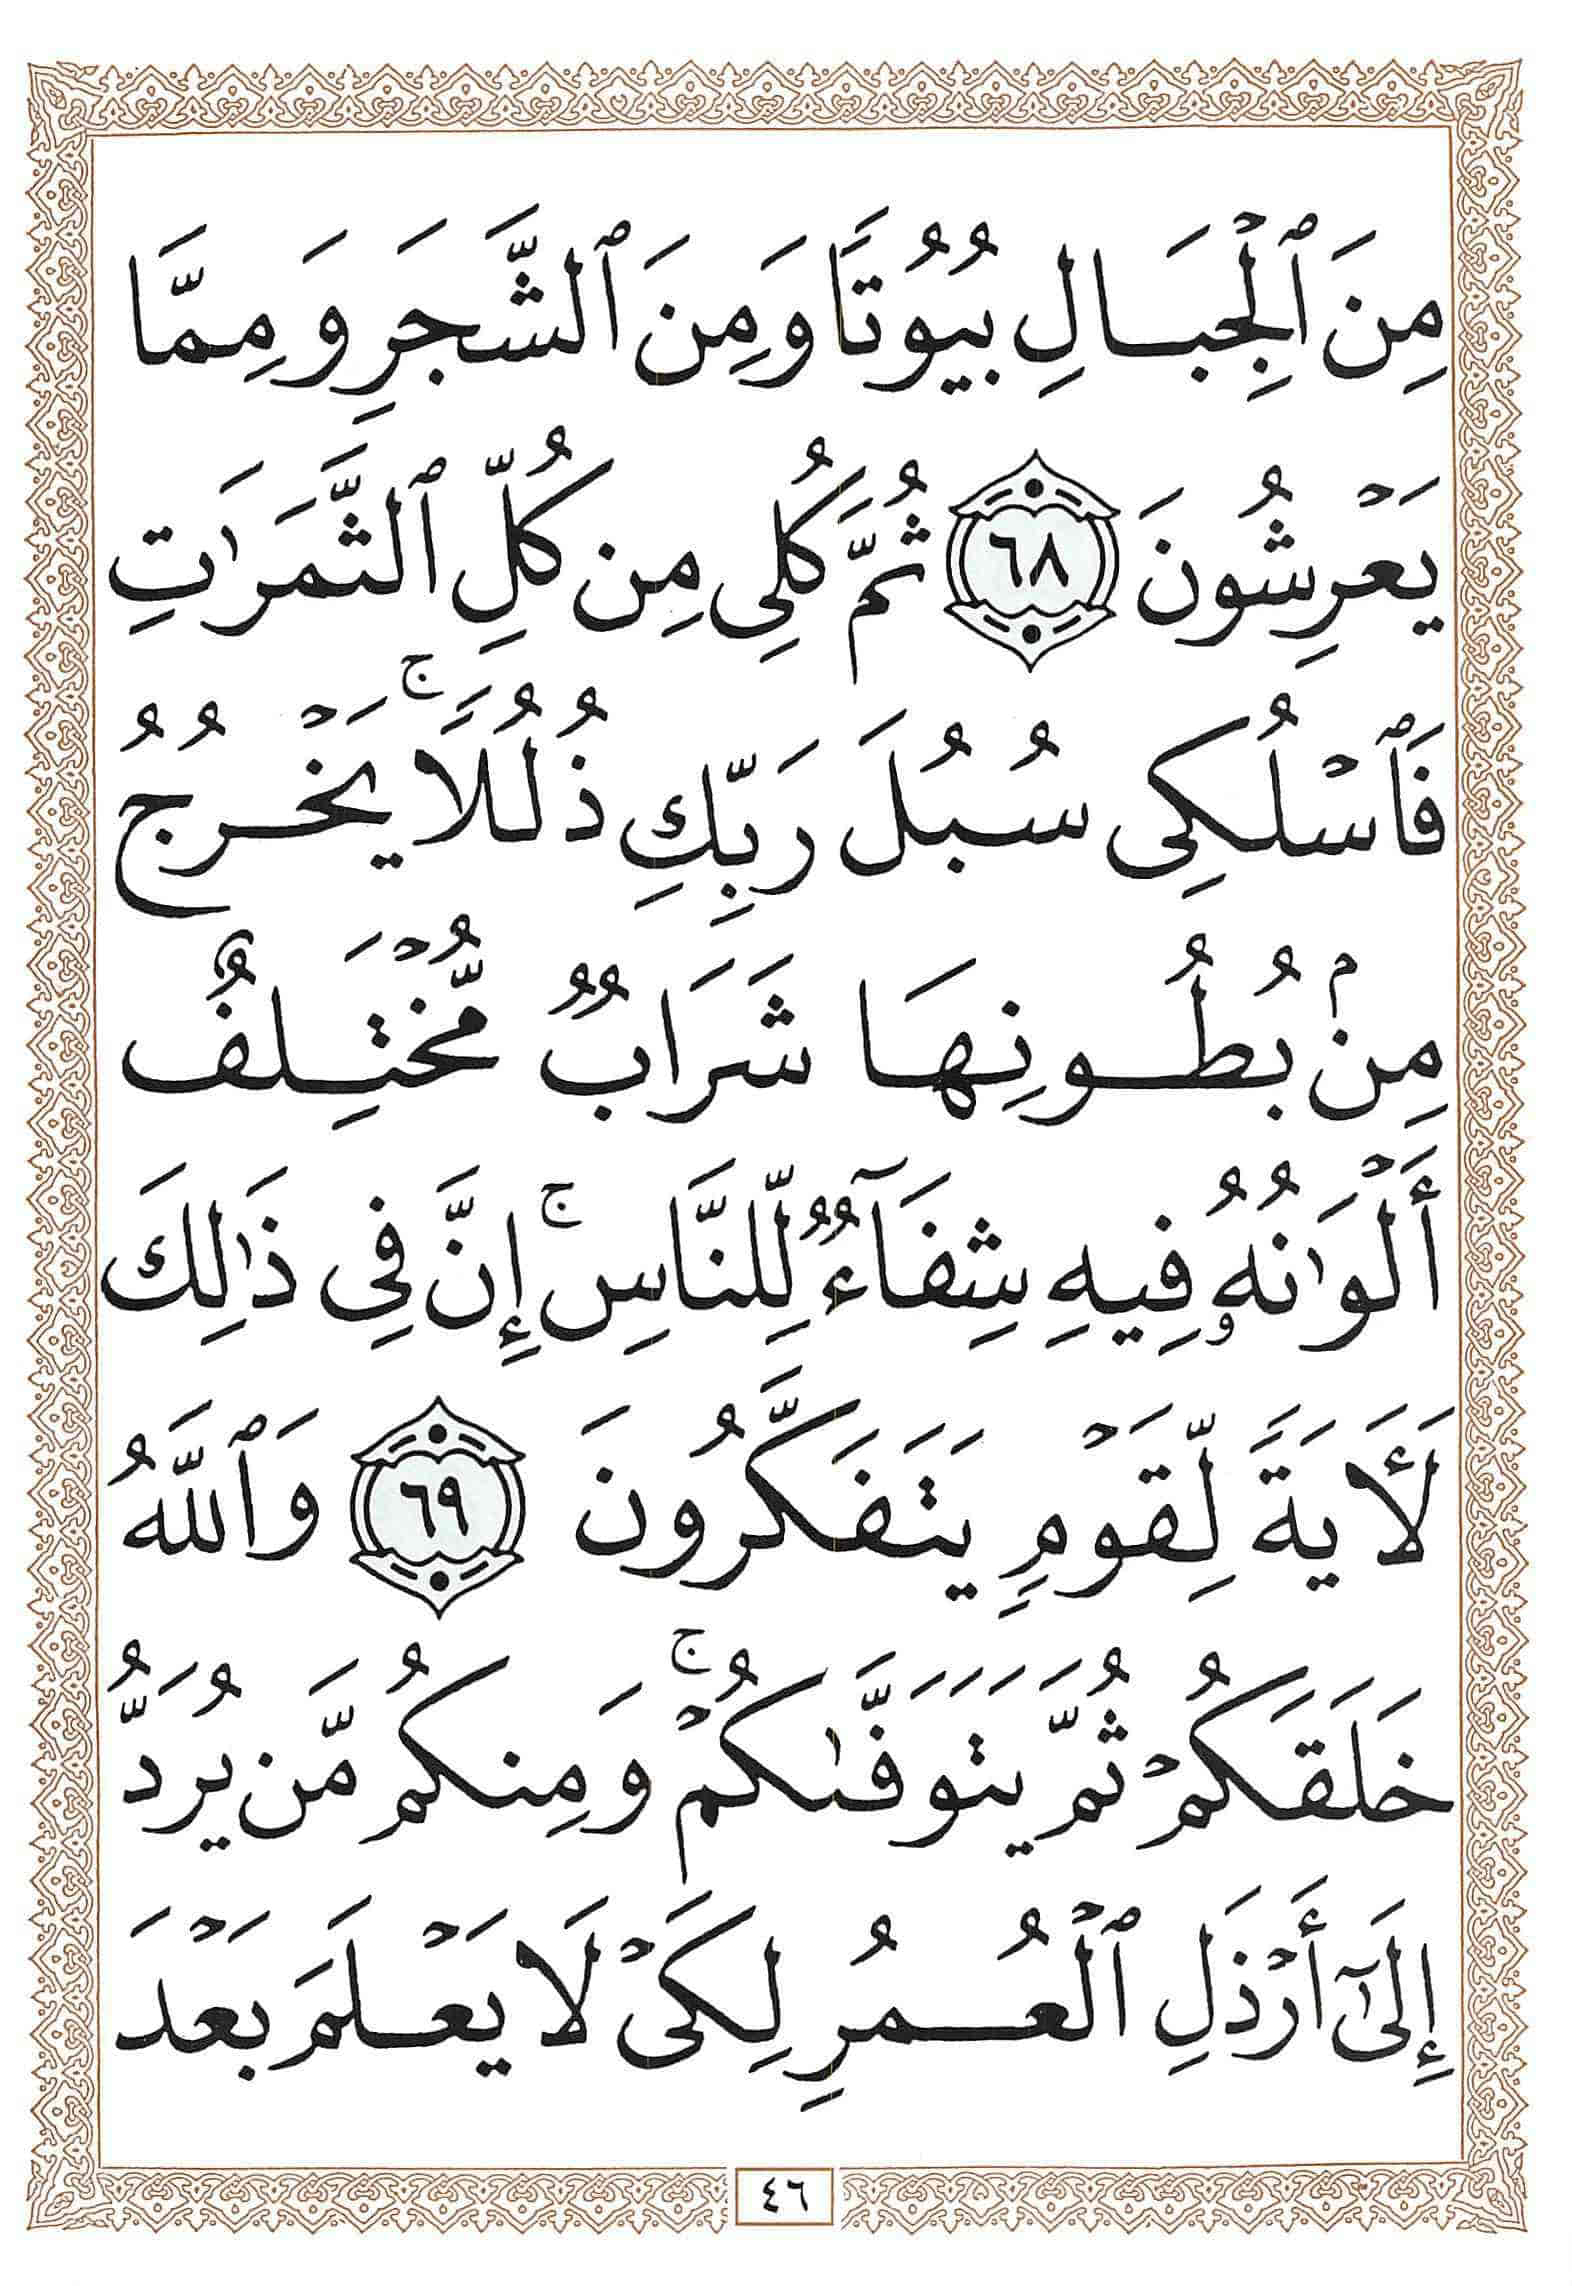 مِنَ ٱلْجِبَالِ بُيُوتًا وَمِنَ ٱلشَّجَرِ وَمِمَّا
يَعْرِشُونَ ٦٨ ثُمَّ كُلِى مِن كُلِّ ٱلثَّمَرَٰتِ
فَٱسْلُكِى سُبُلَ رَبِّكِ ذُلُلًا ۚ يَخْرُجُ
مِنۢ بُطُونِهَا شَرَابٌ مُّخْتَلِفٌ
أَلْوَٰنُهُۥ فِيهِ شِفَآءٌ لِّلنَّاسِ ۚ إِنَّ فِى ذَٰلِكَ
لَأَيَةً لِّقَوْمٍ يَتَفَكَّرُونَ ٦٩ وَٱللَّهُ
خَلَقَكُمْ ثُمَّ يَتَوَفَّىٰكُمْ ۚ وَمِنكُم مَّن يُرَدُّ
إِلَىٰٓ أَرْذَلِ ٱلْعُمُرِ لِكَىْ لَا يَعْلَمَ بَعْدَ
٤٦